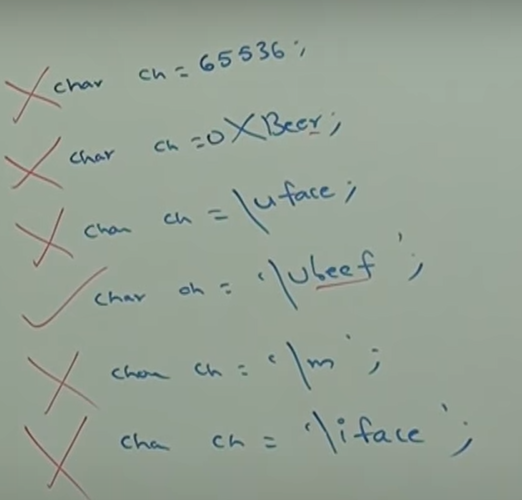 char ch = 65536;
char ch = 0XBeer;
char ch = \uface;
char ch = '\ubeef';
char ch = '\m';
cha ch = '\iface';